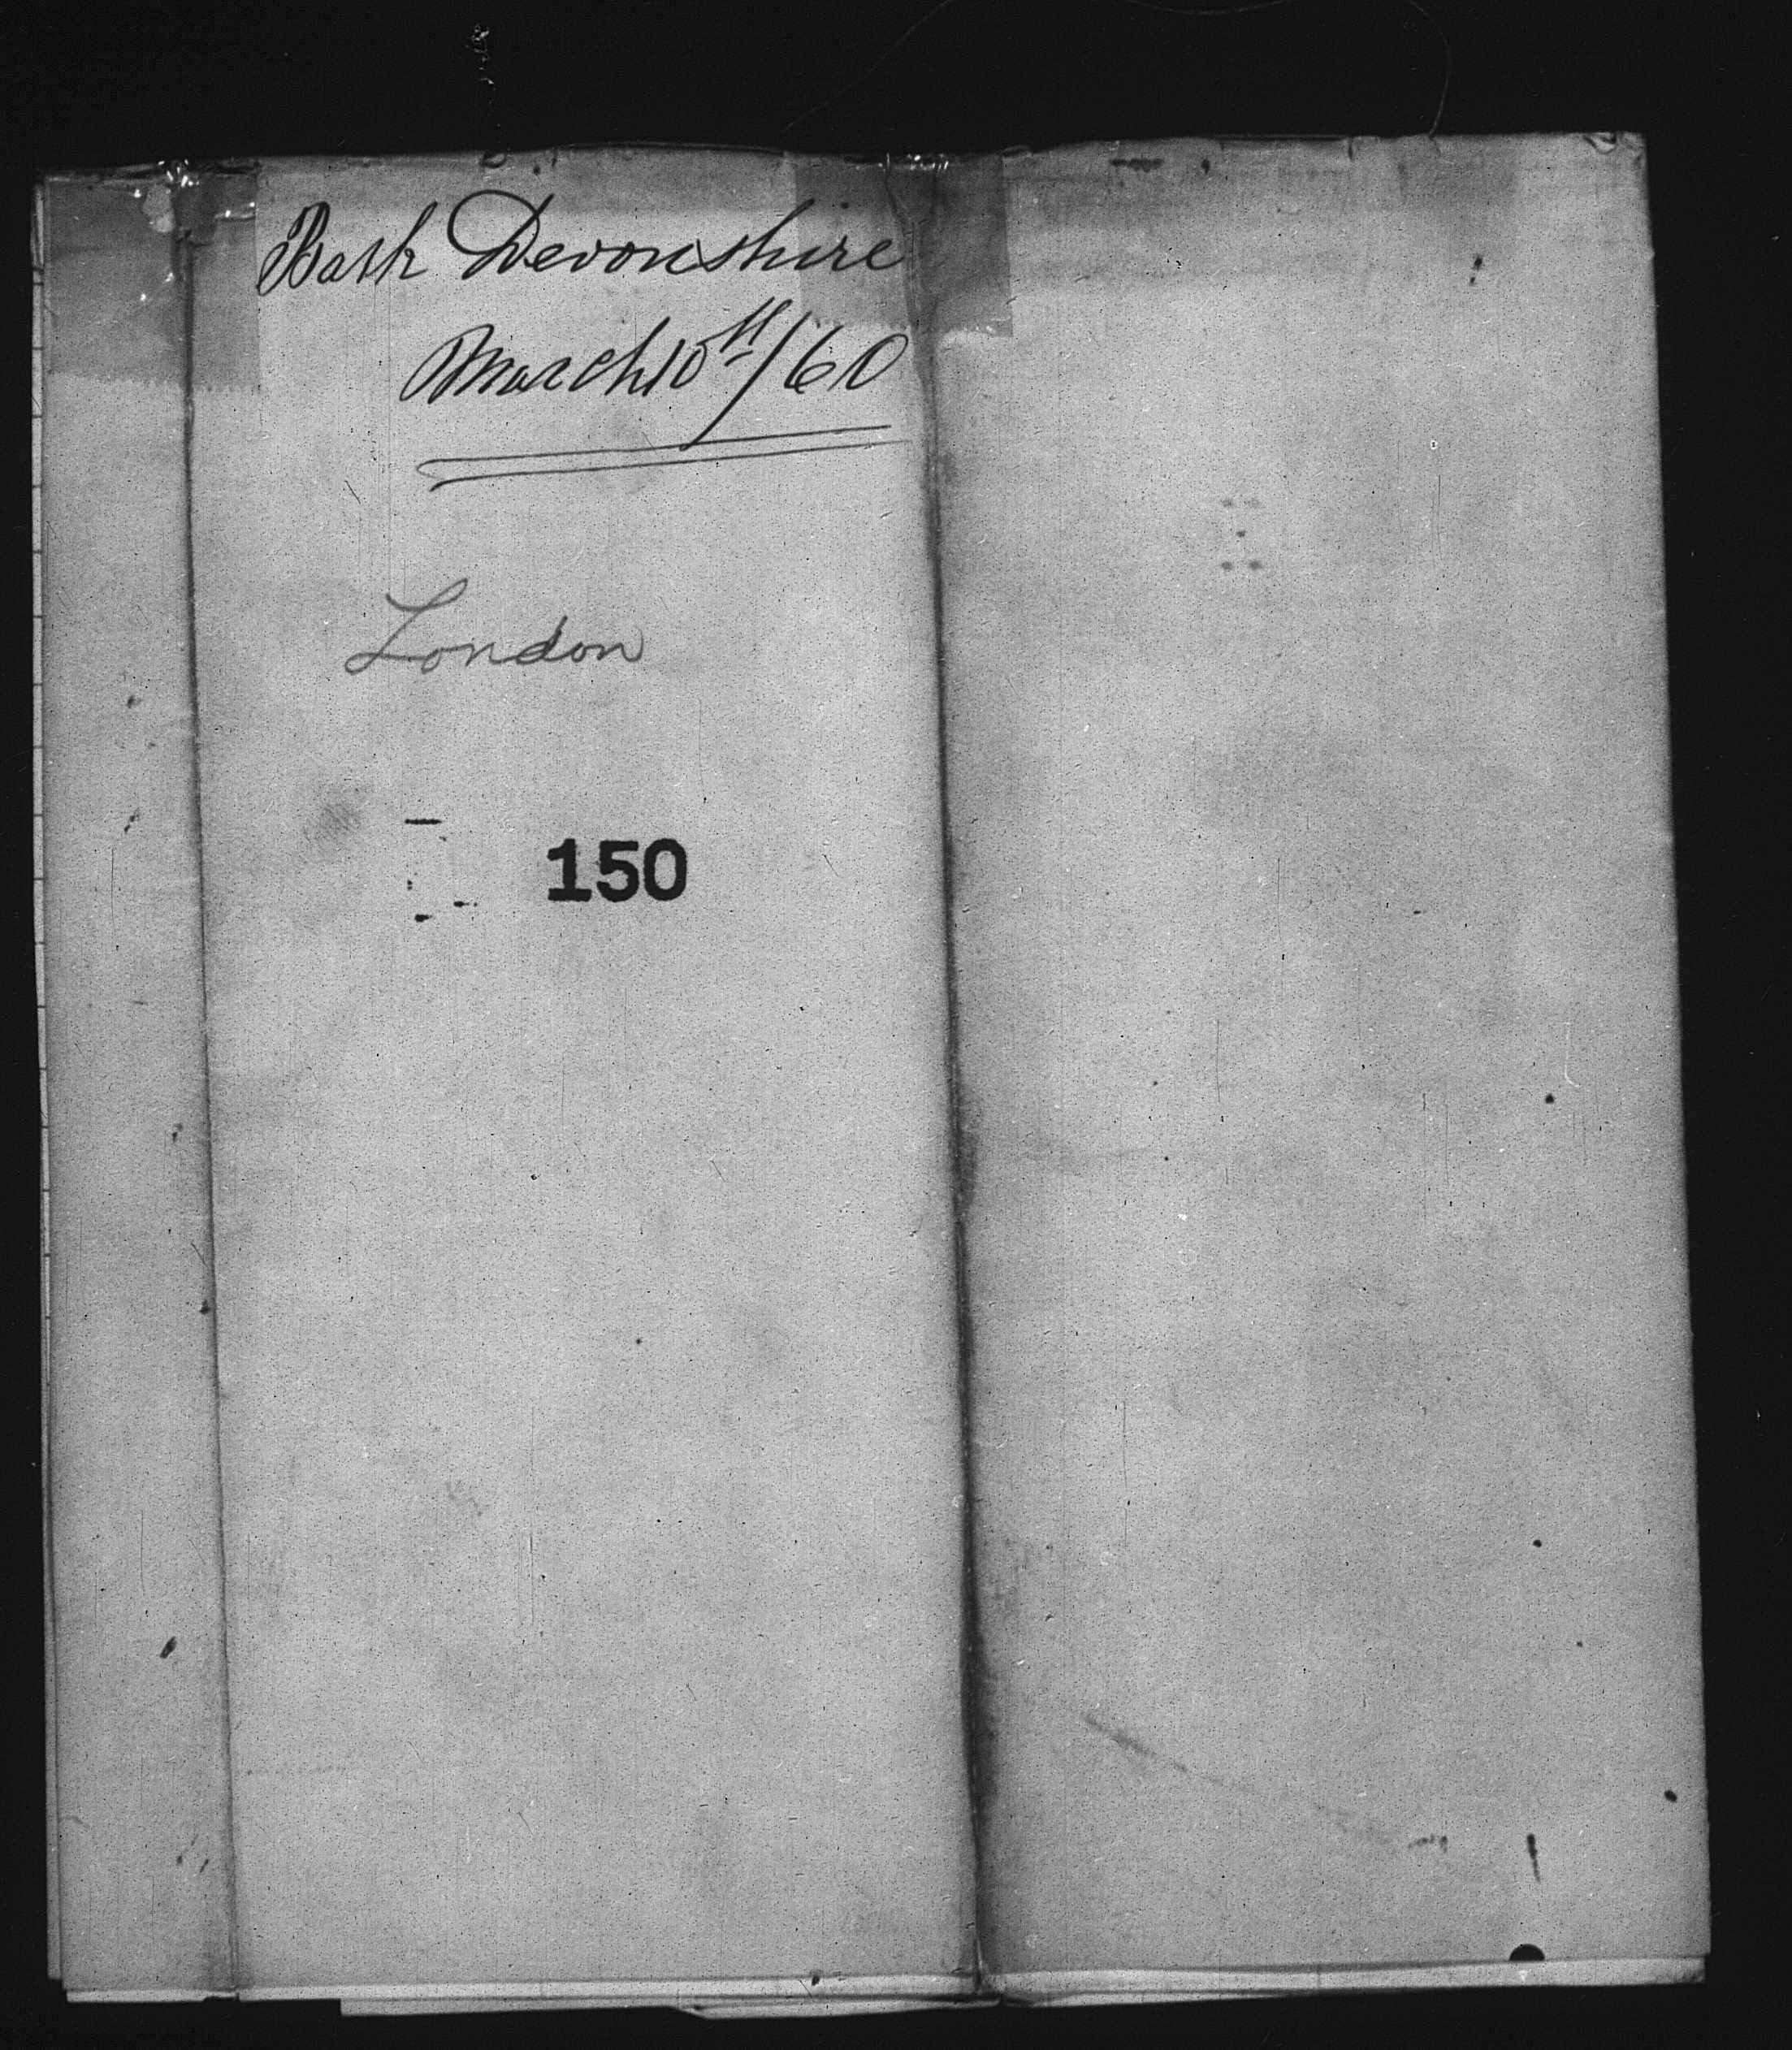 Bark Devonshire
March 10th/60
London
150